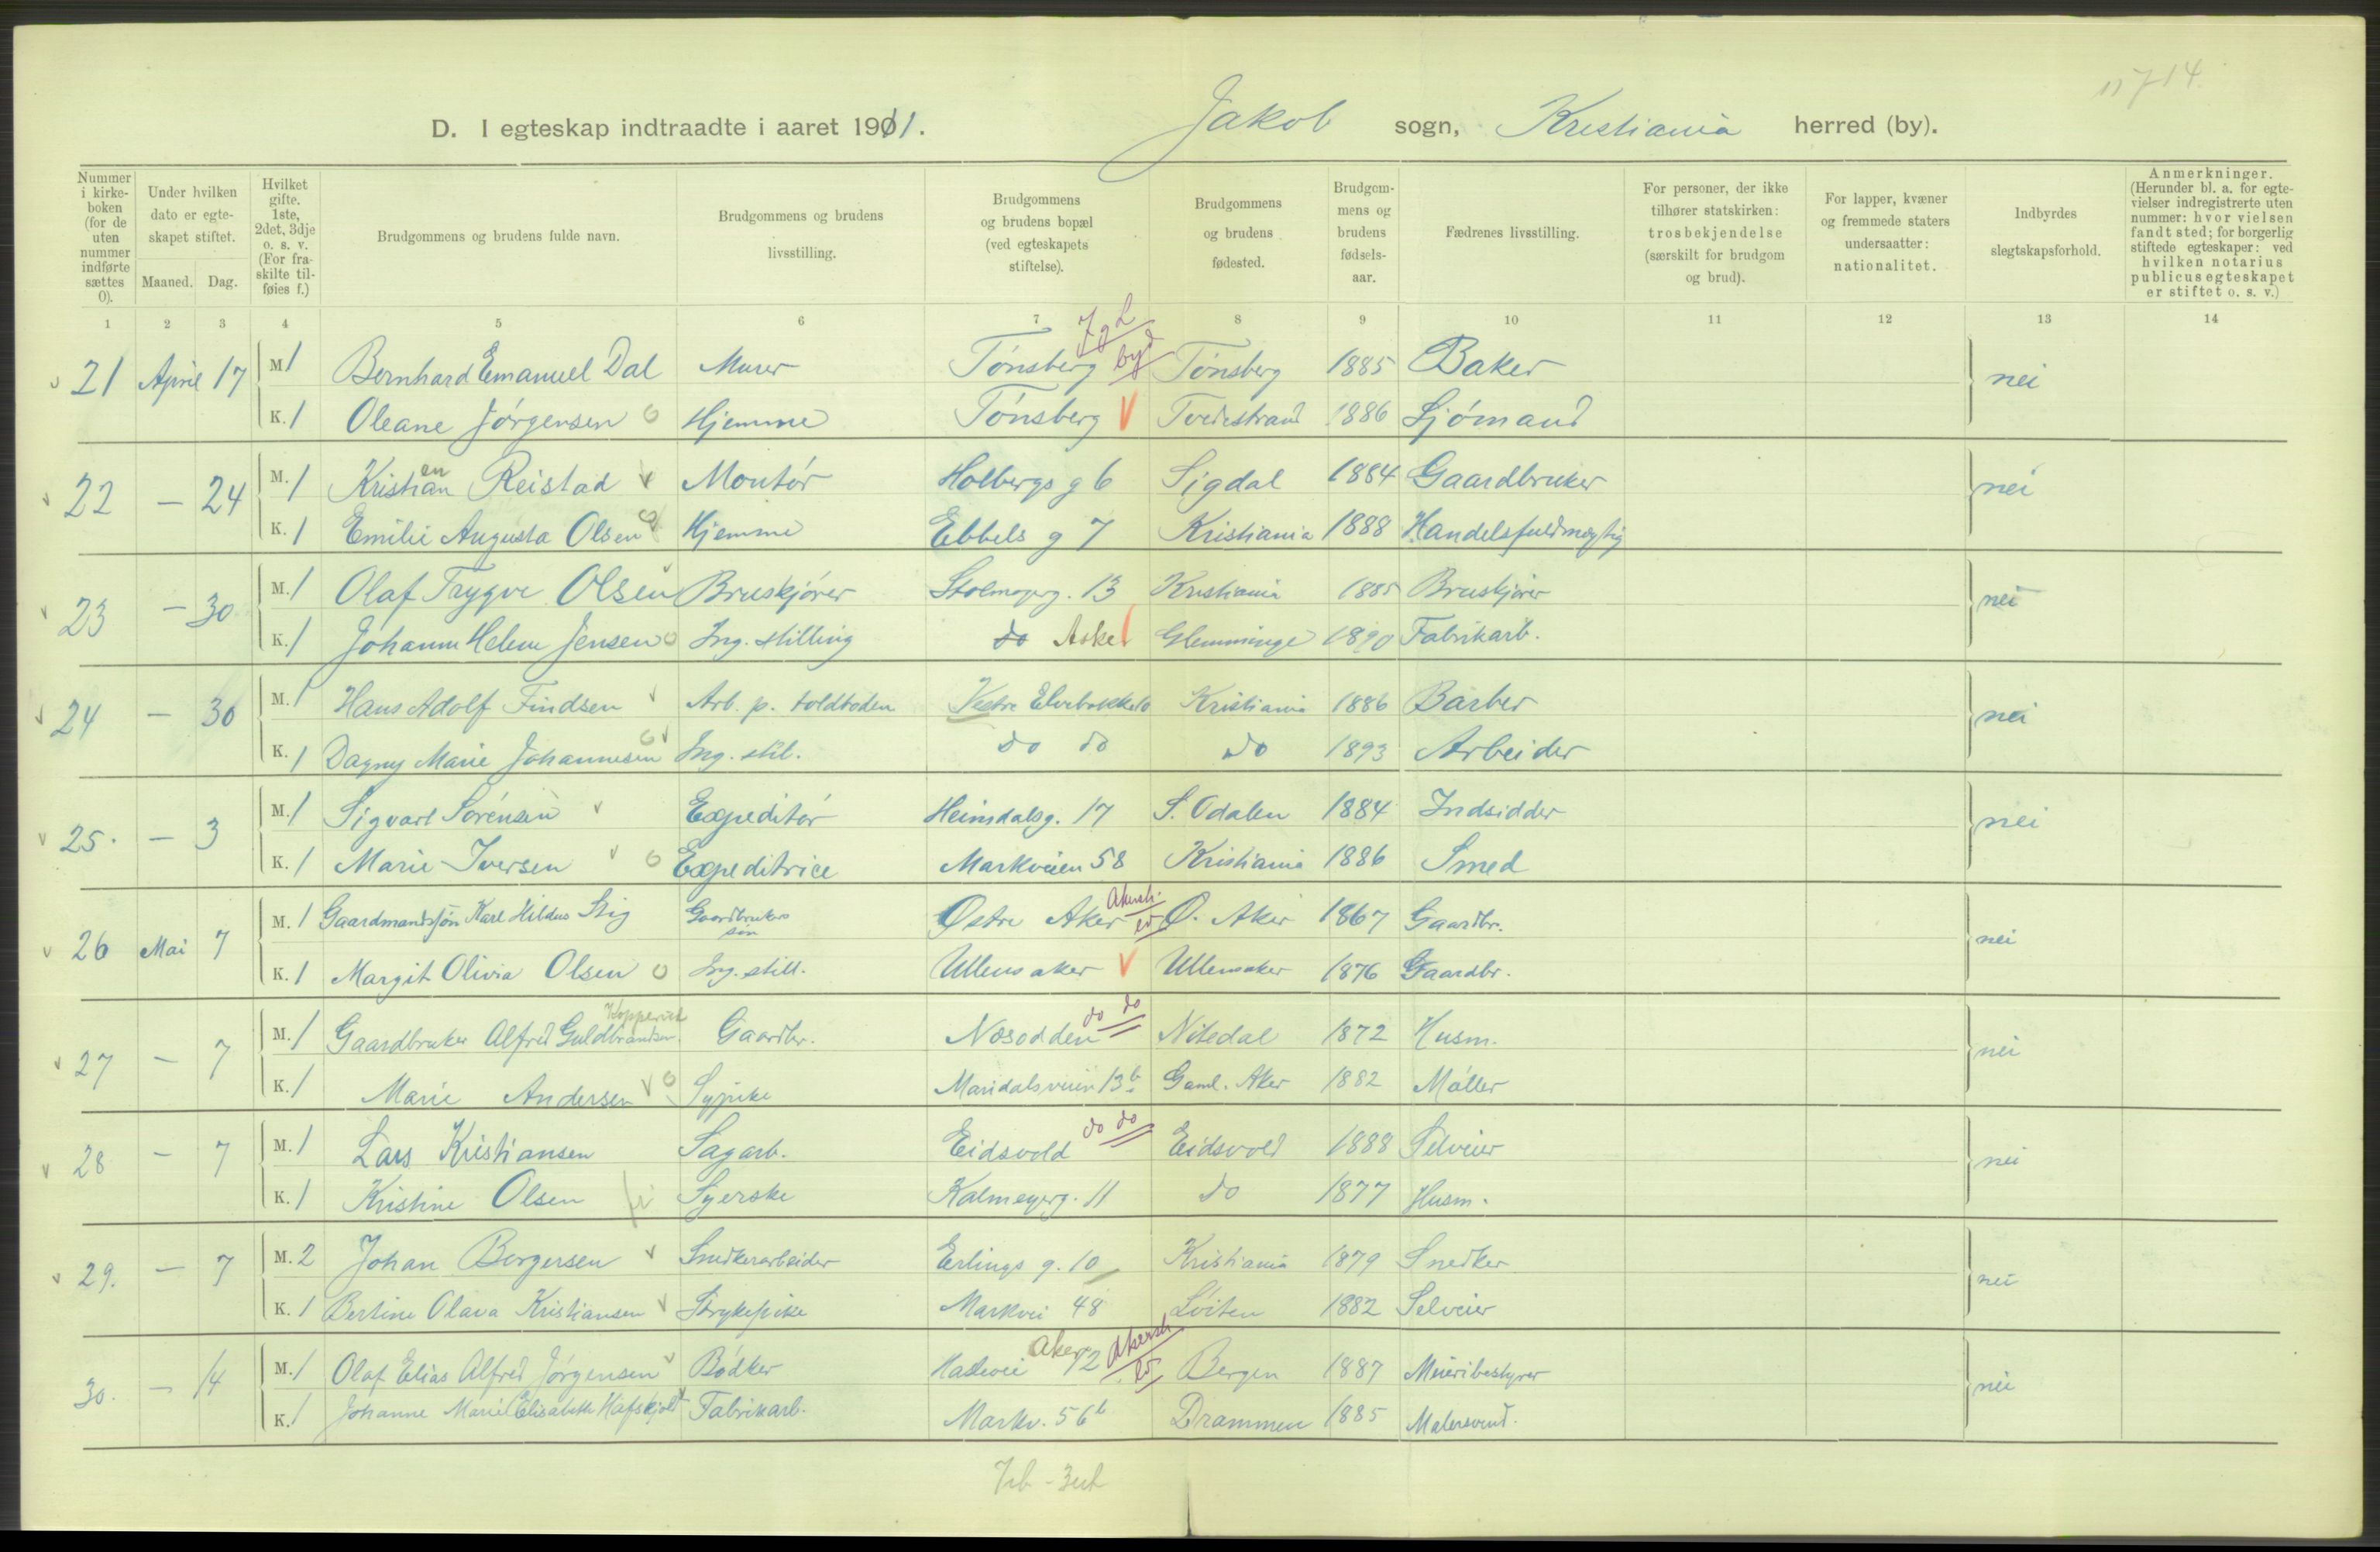 11714.
D. I egteskap indtraadte i aaret 1911. Jakob sogn, Kristiania herred (by).
Nummer i kirkeboken (for de uten nummer indførte sættes 0). | Under hvilken dato er egteskapet stiftet. Maaned. Dag. | Hvilket gifte. 1ste, 2det, 3dje o. s. v. (For fraskilte tilføies f.) | Brudgommens og brudens fulde navn. | Brudgommens og brudens livsstilling. | Brudgommens og brudens bopæl (ved egteskapets stiftelse). | Brudgommens og brudens fødested. | Brudgommens og brudens fødselsaar. | Fædrenes livsstilling. | For personer, der ikke tilhører statskirken: trosbekjendelse (særskilt for brudgom og brud). | For lapper, kvæner og fremmede staters undersaatter: nationalitet. | Indbyrdes slegtskapsforhold. | Anmerkninger. (Herunder bl. a. for egtevielser indregistrerte uten nummer: hvor vielsen fandt sted; for borgerlig stiftede egteskaper: ved hvilken notarius publicus egteskapet er stiftet o. s. v.)
1 2 3 4 5 6 7 8 9 10 11 12 13 14
21 April 17 M 1 Bernhard Emanuel Dal Murer Tønsberg by Tønsberg 1885 Baker nei
K. 1 Oleane Jørgensen Hjemme Tønsberg Tvedestrand 1886 Sjømand
22 — 24 M. 1 Kristian en Reistad Montør Holbergs g 6 Sigdal 1884 Gaardbruker nei
K. 1 Emilie Augusta Olsen Hjemme Ebbels g 7 Kristiania 1888 Handelsfuldmegtig
23 — 30 M. 1 Olaf Trygve Olsen Bruskjører Stolmagerg. 13 Kristiania 1885 Bruskjører nei
K. 1 Johanne Helene Jensen Ing. stilling do Asker Glemminge 1890 Fabrikarb.
24 — 30 M. 1 Hans Adolf Findsen Arb. p. toldboden Vestre Elvebakke 10 Kristiania 1886 Barber nei
K. 1 Dagny Marie Johannesen Ing. stil. do do do 1893 Arbeider
25. — 3 M. 1 Sigvart Sørensen Expeditør Heimdalsg. 17 S. Odalen 1884 Indsidder nei
K. 1 Marie Iversen Expeditrice Markveien 58 Kristiania 1886 Smed
26 Mai 7 M. 1 Gaardmandssøn Karl Hildus Stig Gaardbrukers søn Østre Aker Akersh. Ø. Aker 1867 Gaardbr. nei
K. 1 Margit Olivia Olsen Ing. still. Ullensaker Ullensaker 1876 Gaardbr.
27 — 7 M. 1 Gaardbruker Alfred Guldbrandsen Kopperud Gaardbr. Næsodden do do Nitedal 1872 Husm. nei
K. 1 Marie Andersen Sypike Maridalsveien 13 b Gaml. Aker 1882 Møller
28 — 7 M. 1 Lars Kristiansen Sagarb. Eidsvold do do Eidsvold 1888 Selveier nei
K. 1 Kristine Olsen Syerske Kalmeyerg. 11 do 1877 Husm.
29. — 7 M. 2 Johan Borgersen Snedkerarbeider Erlings g. 10 Kristiania 1879 Snedker nei
K. 1 Bertine Olava Kristiansen Strykepike Markvei 48 Løiten 1882 Selveier
30. — 14 M. 1 Olaf Elias Alfred Jørgensen Bødker Aker 12 Akersh Bergen 1887 Meieribestyrer nei
K. 1 Johanne Marie Elisabeth Hafskjold Fabrikarb. Markv. 56 b Drammen 1885 Malersvend.